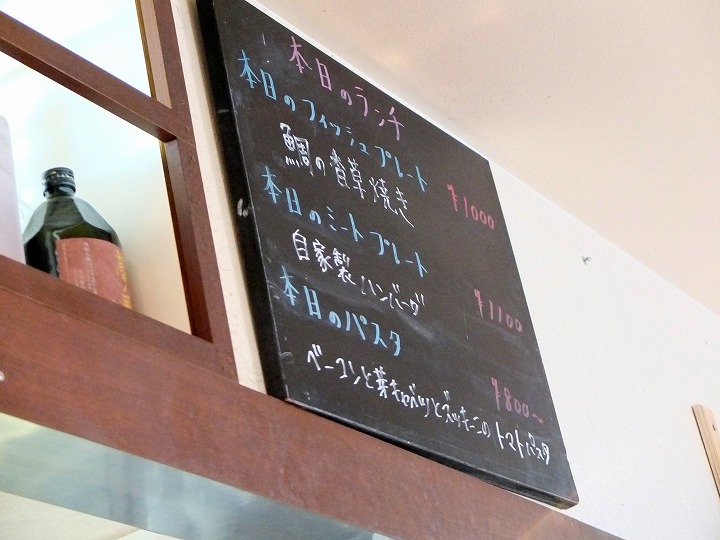 本日のランチ
本日のフィッシュプレート
鯛の香草焼き ¥1000
本日のミートプレート
自家製ハンバーグ ¥1100
本日のパスタ
¥800〜
ベーコンと芽キャベツとズッキーニのトマトパスタ